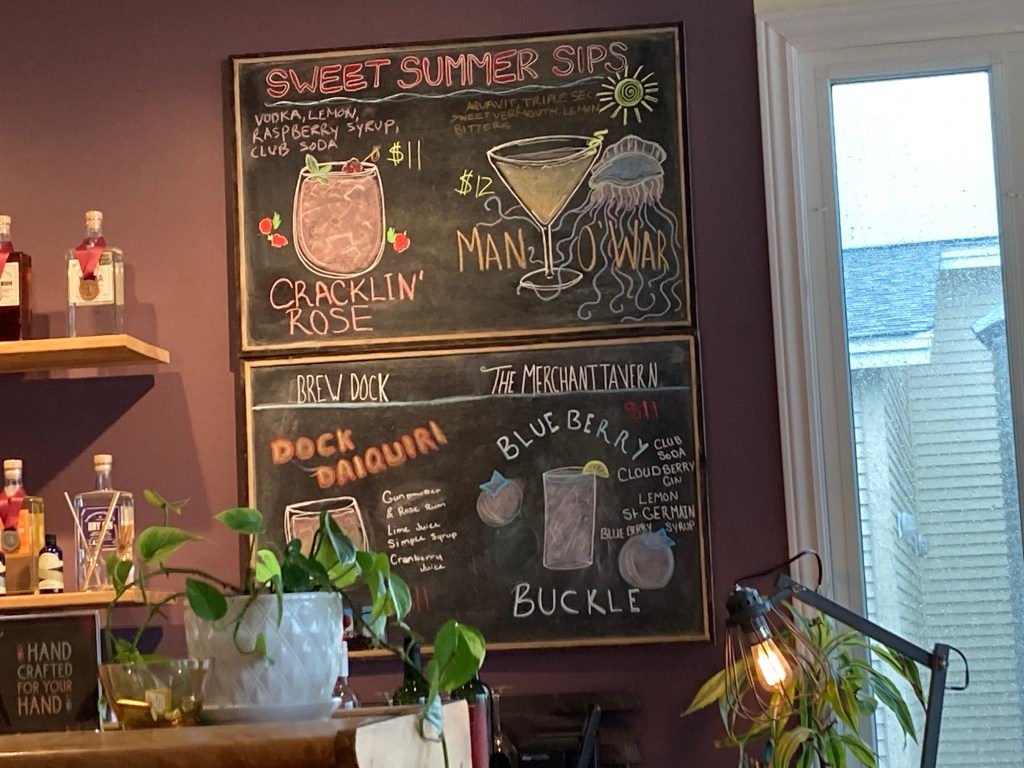 SWEET SUMMER SIPS
VODKA, LEMON,
RASPBERRY SYRUP,
CLUB SODA
$11
CRACKLIN'
ROSE
AQUAVIT, TRIPLE SEC
SWEET VERMOUTH, LEMON
BITTERS
$12
MAN O'WAR
BREW DOCK
THE MERCHANT TAVERN
DOCK
DAIQUIRI
Gunpowder
& Rose Rum
Lime Juice
Simple Syrup
Cranberry
Juice
11
$11
BLUEBERRY
CLUB
SODA
CLOUDBERRY
GIN
LEMON
St GERMAIN
BLUEBERRY SYRUP
BUCKLE
HAND
CRAFTED
FOR YOUR
HAND